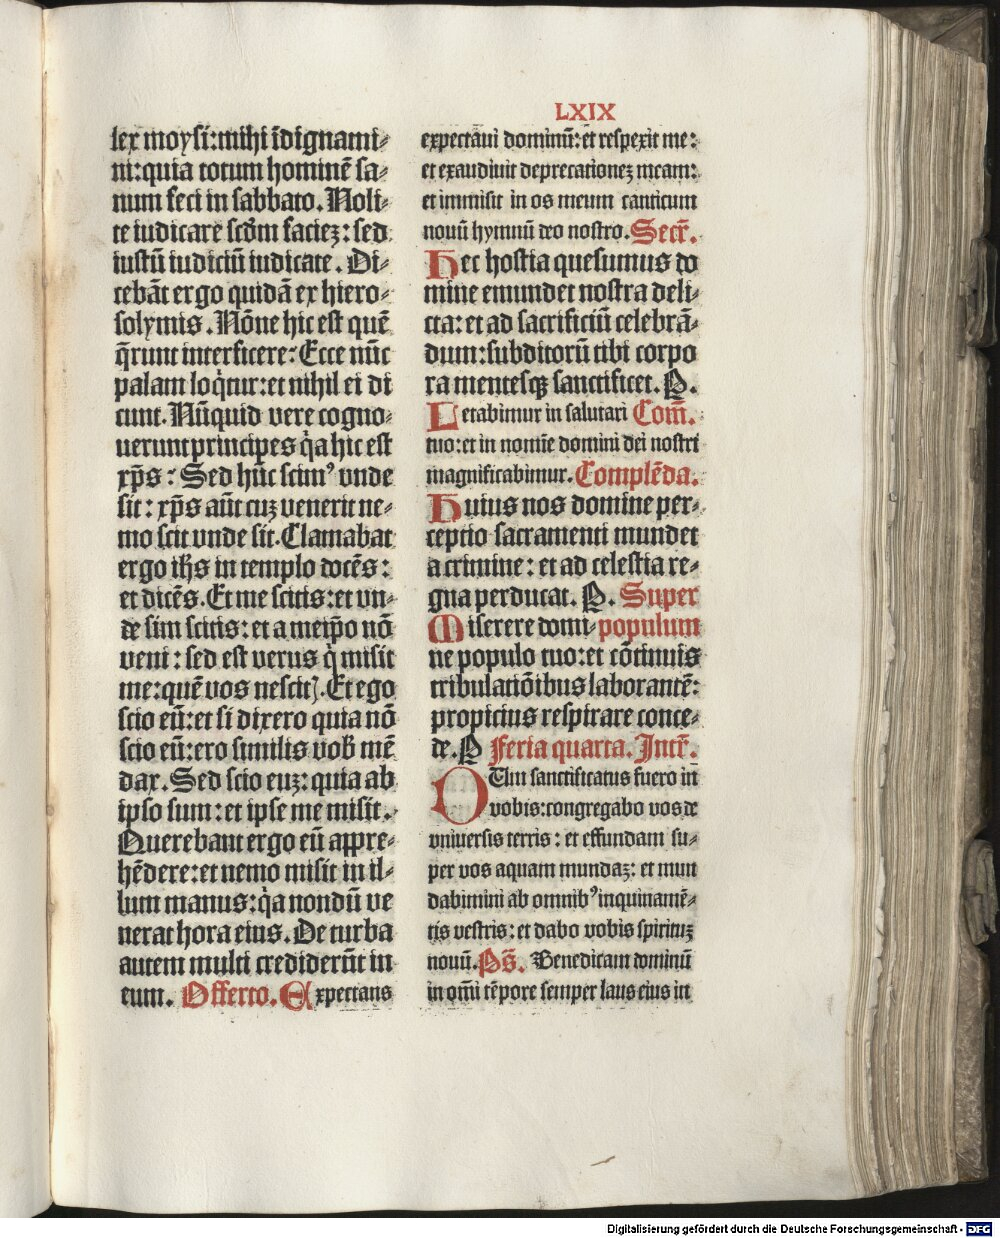 LXIX
lex moysi: mihi īdignami⸗
ni: quia totum hominē sa⸗
num feci in sabbato. Noli⸗
te iudicare scd̄m faciez: sed
iustū iudiciū iudicate. Di⸗
cebāt ergo quidā ex hiero⸗
solymis. Nōne hic est quē
q̄runt interficere: Ecce nūc
palam loq̇tur: et nihil ei di
cunt. Nūquid vere cogno⸗
verunt principes q̇a hic est
xp̄s: Sed hūc scimꝰ vnde
sit: xp̄s aūt cuz venerit ne⸗
mo scit vnde sit. Clamabat
ergo ihs̄ in templo docēs:
et dicēs. Et me scitis: et vn⸗
de sim scitis: et a meip̄o nō
veni: sed est verus q̇ misit
me: quē vos nescitꝭ. Et ego
scio eū: et si dixero quia nō
scio eū: ero similis vob̄ mē
dax. Sed scio euz: quia ab
ipso sum: et ipse me misit.
Querebant ergo eū appre⸗
hēdere: et nemo misit in il⸗
lum manus: q̇a nondū ve
nerat hora eius. De turba
autem multi crediderūt in
eum. Offerto. Expectans
expectāui dominū: et respexit me:
et exaudiuit deprecationez meam:
et immisit in os meum canticum
nouū hymnū deo nostro. Secr̄.
Hec hostia quesumus do
mine emundet nostra deli⸗
cta: et ad sacrificiū celebrā⸗
dum: subditorū tibi corpo
ra mentesqꝫ sanctificet. P.
Letabimur in salutari Com̄.
tuo: et in nomīe domini dei nostri
magnificabimur. Complēda.
Huius nos domine per⸗
ceptio sacramenti mundet
a crimine: et ad celestia re⸗
gna perducat. P. Super
Miserere domi⸗ populum
ne populo tuo: et cōtinuis
tribulatiōibus laborantē:
propicius respirare conce⸗
de. P Feria quarta. Intr̄.
CUm sanctificatus fuero in
vobis: congregabo vos de
vniuersis terris: et effundam su⸗
per vos aquam mundaz: et mun
dabimini ab omnibꝰ inquinamē⸗
tis vestris: et dabo vobis spirituz
nouū. Ps̄. Benedicam dominū
in om̄i tēpore semper laus eius in
Digitalisierung gefördert durch die Deutsche Forschungsgemeinschaft - DFG